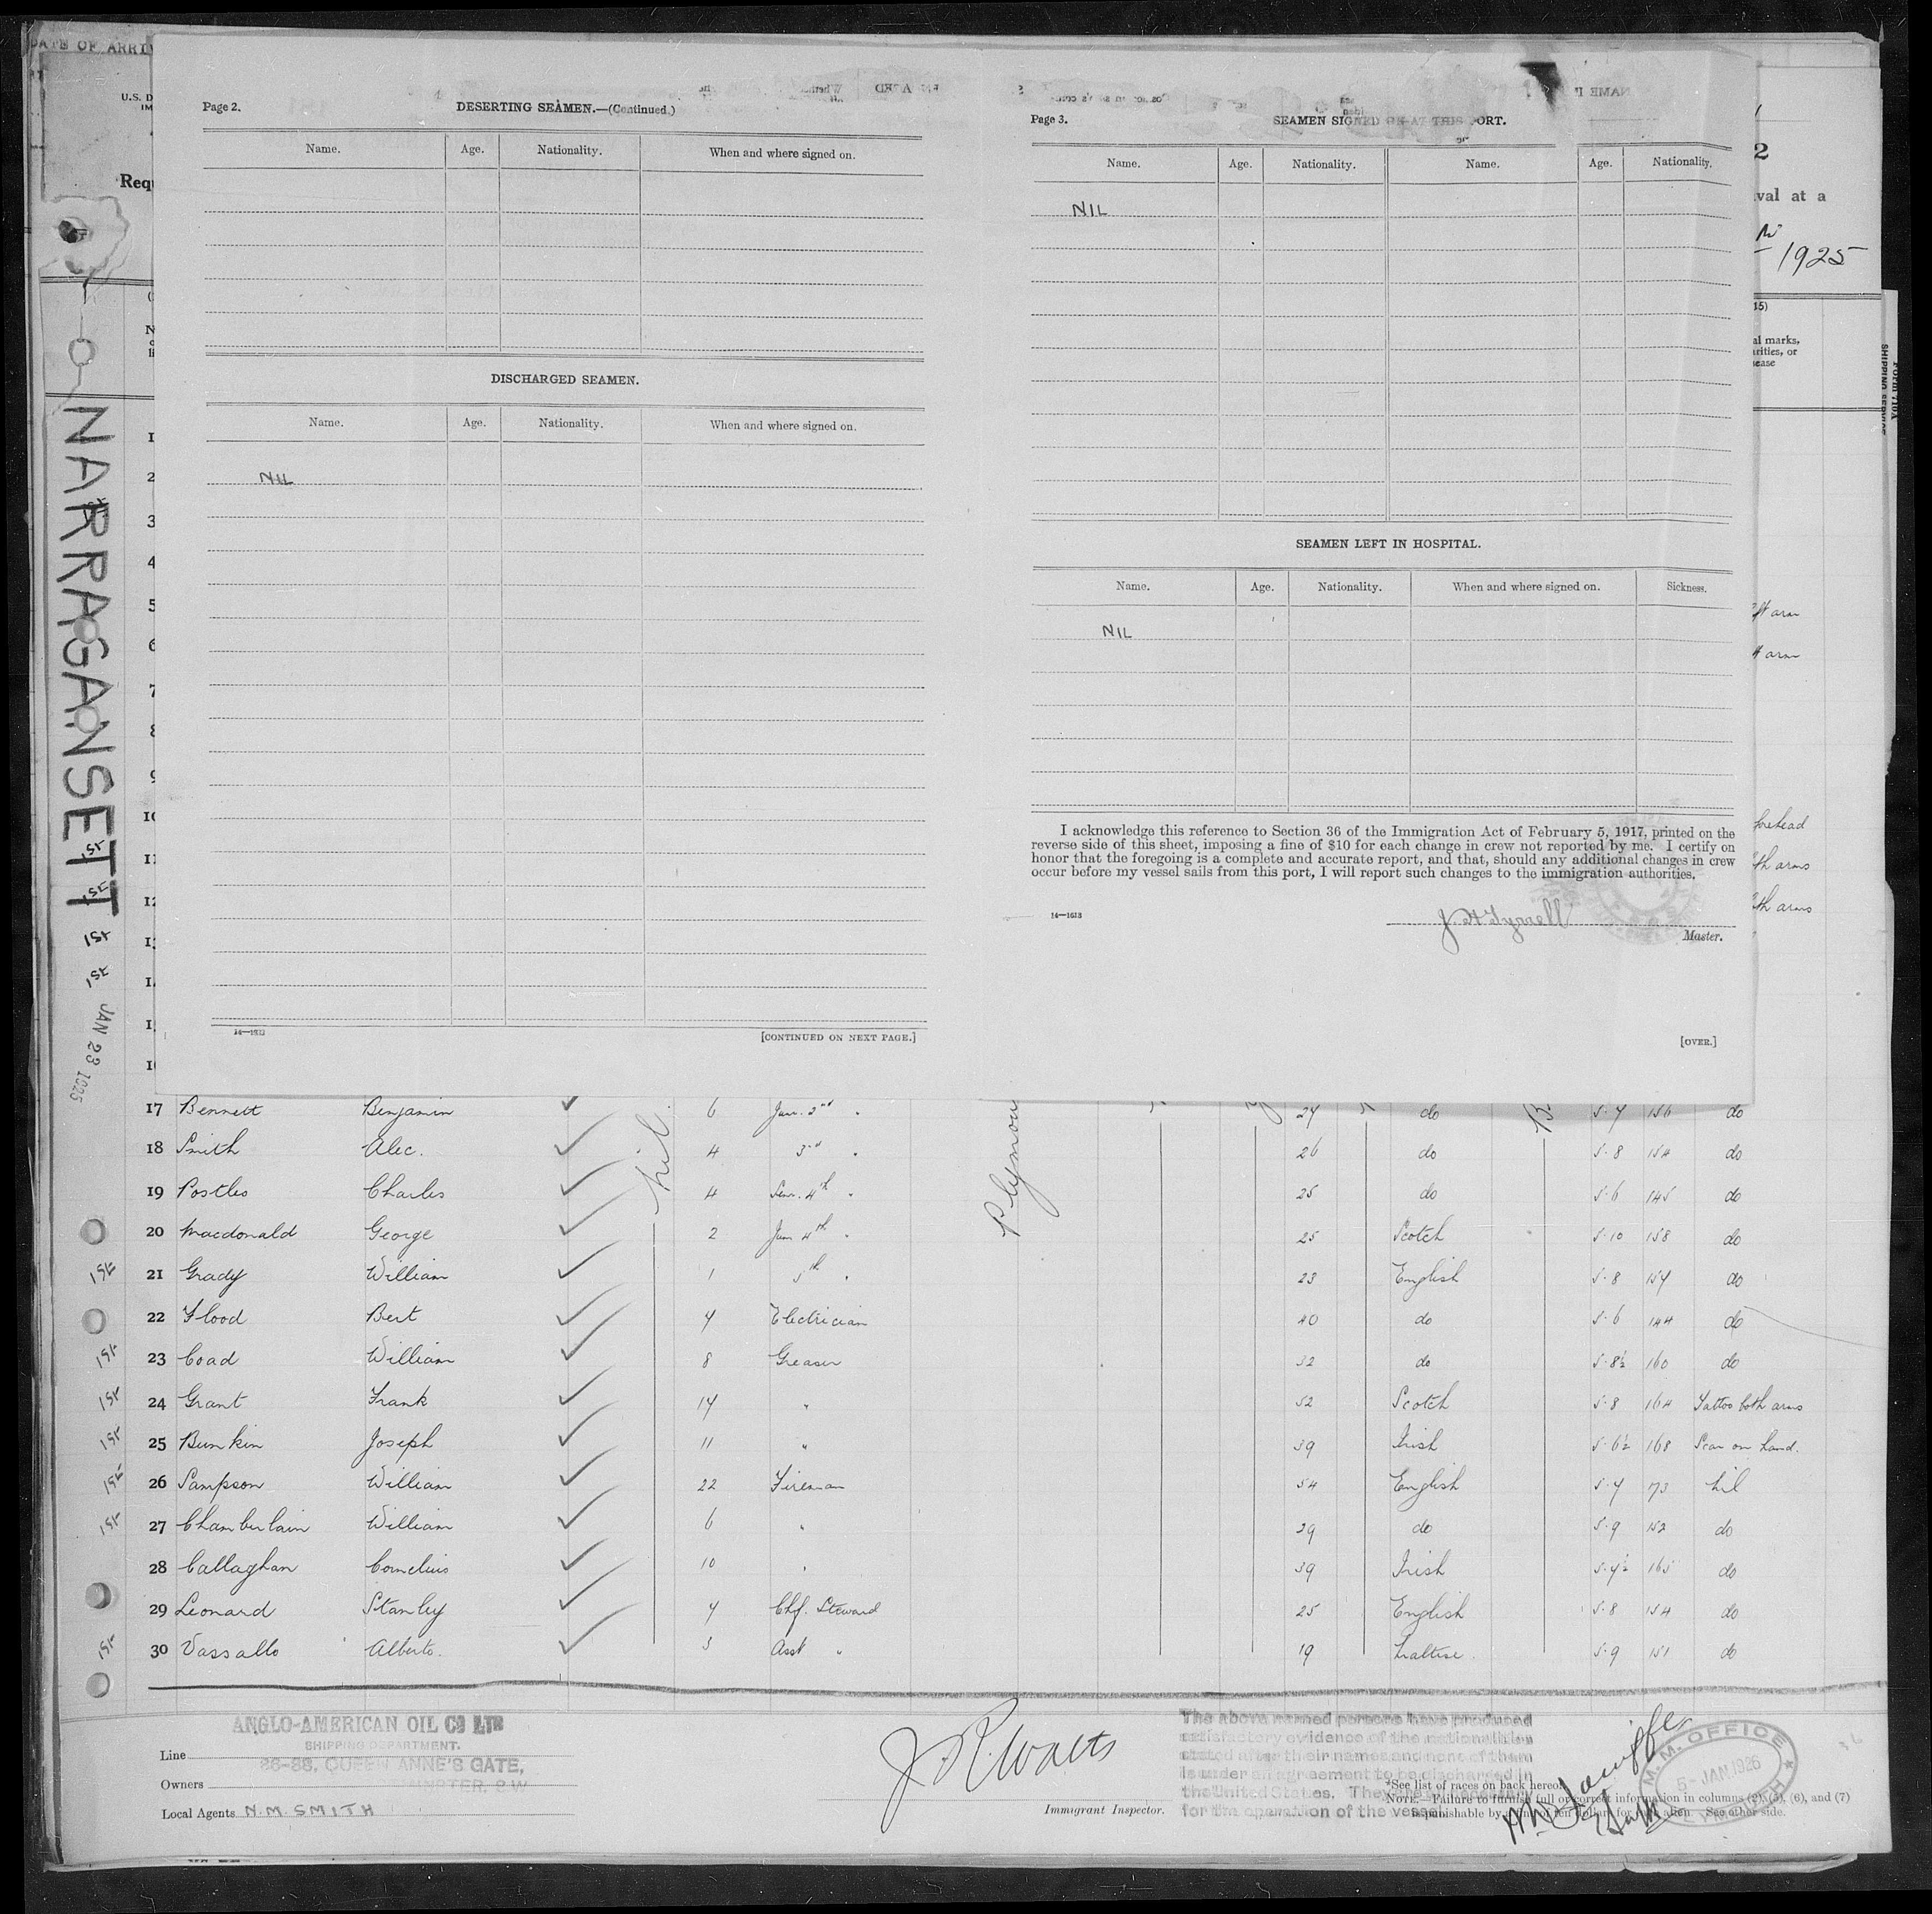 DATE OF ARRI
U.S. D
IM
Requ
NARRAGANSETT
JAN 23 1925
Page 2.
DESERTING SEAMEN.—(Continued.)
Name. Age. Nationality. When and where signed on.
DISCHARGED SEAMEN.
Name. Age. Nationality. When and where signed on.
NIL
14—1618
[CONTINUED ON NEXT PAGE.]
Page 3.
SEAMEN SIGNED ON AT THIS PORT.
Name. Age. Nationality. Name. Age. Nationality.
NIL
SEAMEN LEFT IN HOSPITAL.
Name. Age. Nationality. When and where signed on. Sickness.
NIL
I acknowledge this reference to Section 36 of the Immigration Act of February 5, 1917, printed on the
reverse side of this sheet, imposing a fine of $10 for each change in crew not reported by me. I certify on
honor that the foregoing is a complete and accurate report, and that, should any additional changes in crew
occur before my vessel sails from this port, I will report such changes to the immigration authorities.
14—1618
J. H Tyrrell
Master.
[OVER.]
2
val at a
1925
al marks,
arities, or
sease
ft arm
t arm
forehead
th arms
oth arms
Plymou
nil
17 Bennett Benjamin 6 Jun. 2nd " 27 do 5.7 156 do
18 Smith Alec. 4 3rd " 26 do 5.8 154 do
19 Postles Charles 4 Senr. 4th " 25 do 5.6 145 do
20 Macdonald George 2 Jun 4th " 25 Scotch 5.10 158 do
21 Grady William 1 5th " 23 English 5.8 157 do
22 Flood Bert 7 Electrician 40 do 5.6 144 do
23 Coad William 8 Greaser 32 do 5.8½ 160 do
24 Grant Frank 17 " 52 Scotch 5.8 164 Tattoo both arms
25 Bunkin Joseph 11 " 39 Irish 5.6½ 168 Scar on hand.
26 Sampson William 22 Fireman 54 English 5.7 173 nil
27 Chamberlain William 6 " 29 do 5.9 152 do
28 Callaghan Cornelius 10 " 39 Irish 5.7½ 165 do
29 Leonard Stanley 7 Chf. Steward 25 English 5.8 154 do
30 Vassallo Alberto. 3 Asst " 19 Maltese 5.9 151 do
ANGLO-AMERICAN OIL CO LTD
SHIPPING DEPARTMENT.
Line
36-38, QUEEN ANNE'S GATE,
Owners
Local Agents N.M. SMITH
J. R. Watts
Immigrant Inspector.
The above named persons have produced
satisfactory evidence of the nationalities
stated after their names and none of them
is under an agreement to be discharged in
the United States. They
for the operation of the vessel.
*See list of races on back hereof.
NOTE.—Failure to furnish full or correct information in columns (2), (5), (6), and (7)
is punishable by a fine of ten dollars for each alien. See other side.
M.M. OFFICE
5-JAN.1926
PLYMOUTH